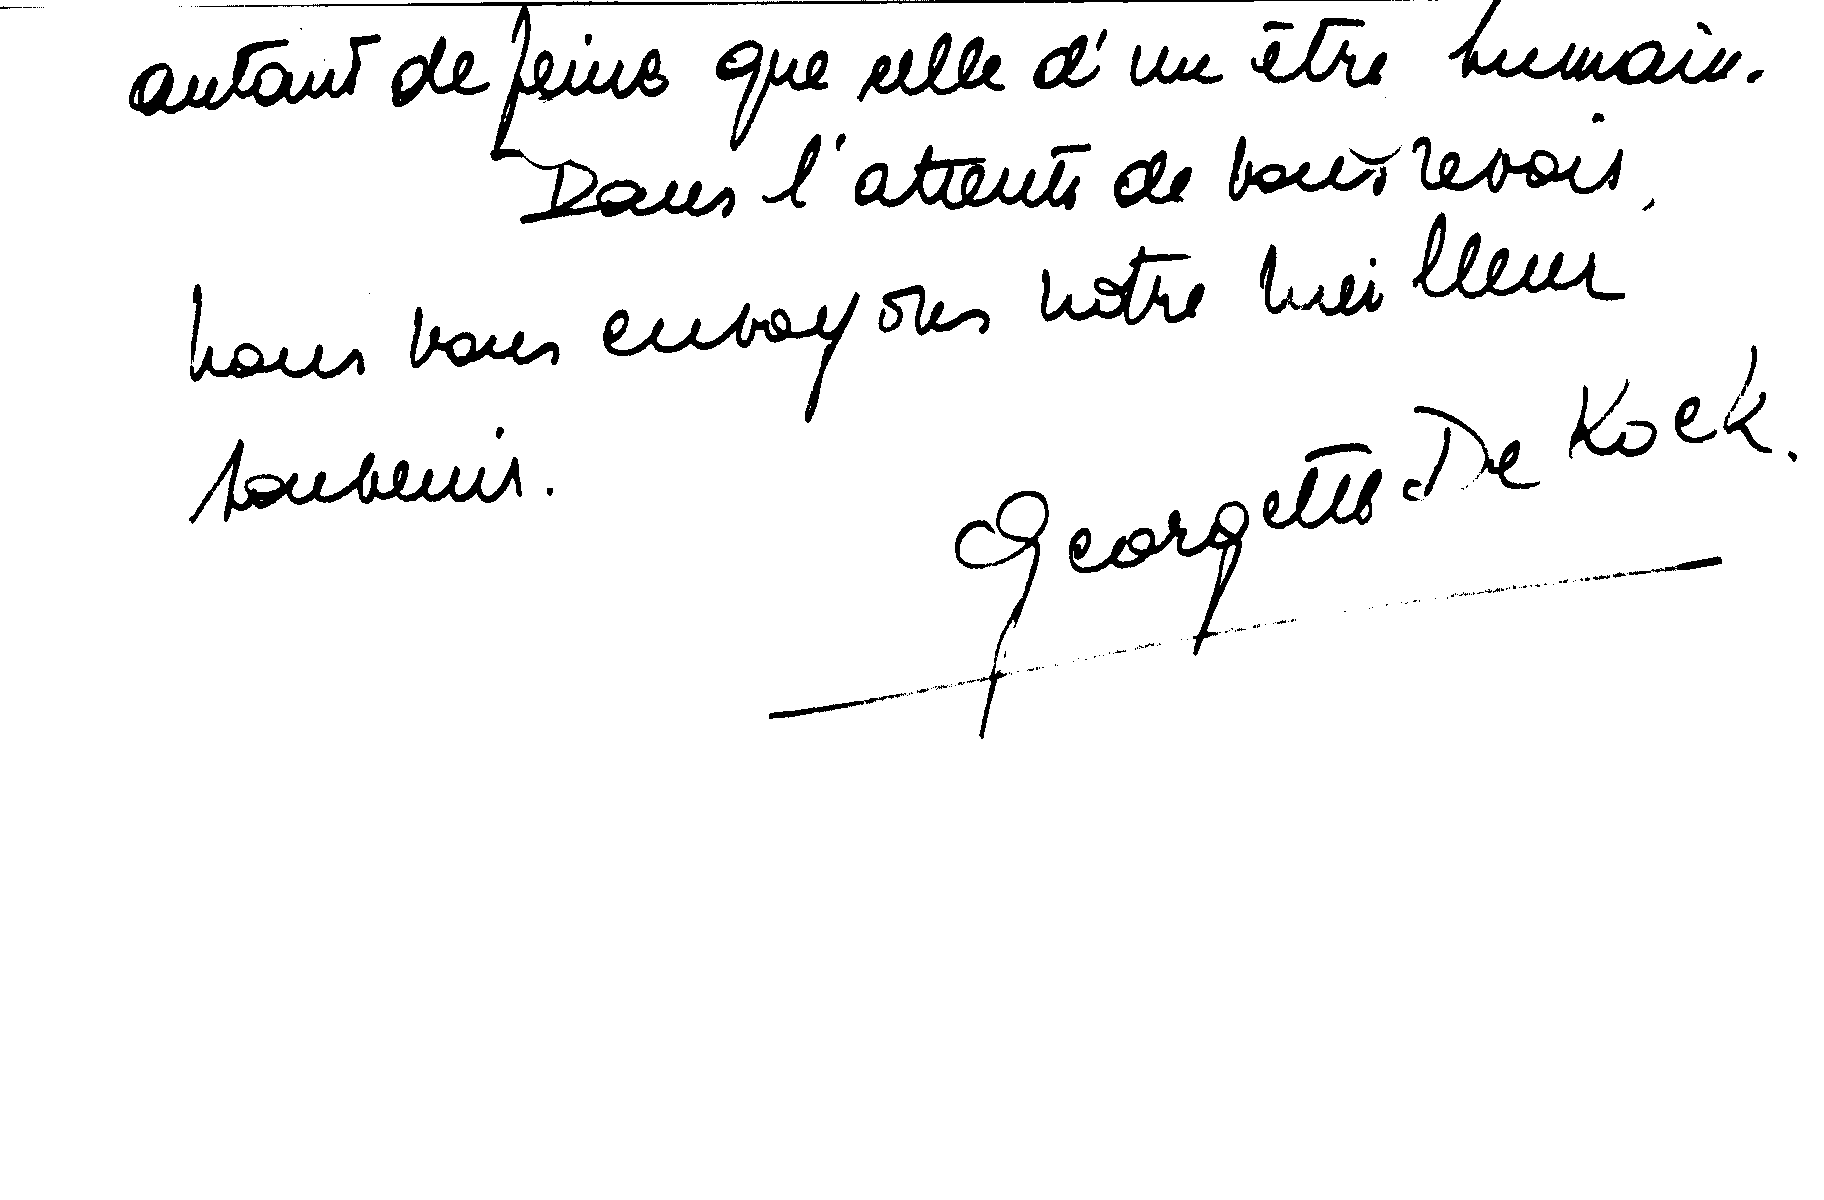 autant de peine que celle d'un être humain.
Dans l'attente de vous revoir,
nous vous envoyons notre meilleur
souvenir.
Georgette De Kock.